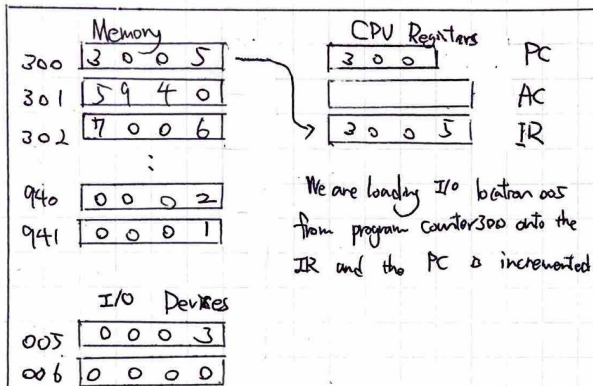 Memory
300 3 0 0 5
301 5 9 4 0
302 7 0 0 6
:
940 0 0 0 2
941 0 0 0 1
I/O Devices
005 0 0 0 3
006 0 0 0 0
CPU Registers
3 0 0 PC
AC
3 0 0 5 IR
We are loading I/O location 005
from program counter 300 onto the
IR and the PC is incremented